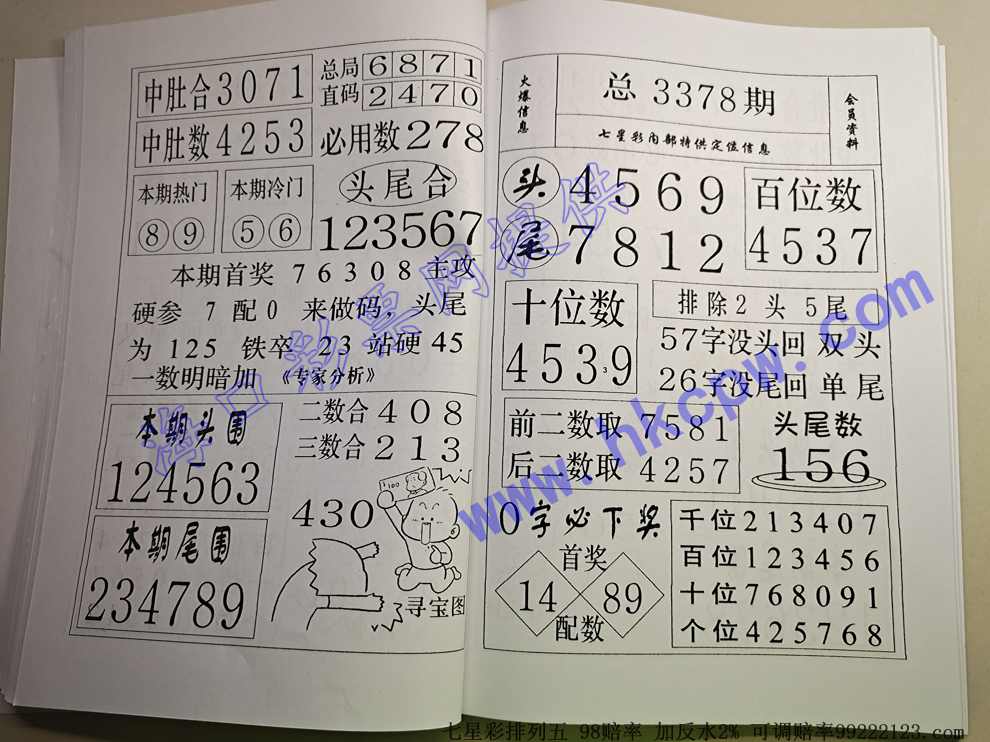 中肚合3071
中肚数4253
总局6871
直码2470
必用数278
本期热门
⑧⑨
本期冷门
⑤⑥
头尾合
123567
本期首奖 76308 主攻
硬参 7 配 0 来做码，头尾
为 125 铁卒 23 站硬 45
一数明暗加 《专家分析》
本期头围
124563
二数合 408
三数合 213
本期尾围
234789
430
100
寻宝图
火爆信息
总 3378期
七星彩内部特供定位信息
会员资料
头 4569
尾 7812
百位数
4537
十位数
4539
3
排除2头 5尾
57字没头回 双头
26字没尾回 单尾
前二数取 7581
后二数取 4257
头尾数
156
0字必下奖
首奖
14 89
配数
千位213407
百位123456
十位768091
个位425768
海口彩票网提供
www.hkcpw.com
七星彩排列五 98赔率 加反水2% 可调赔率99222123.com